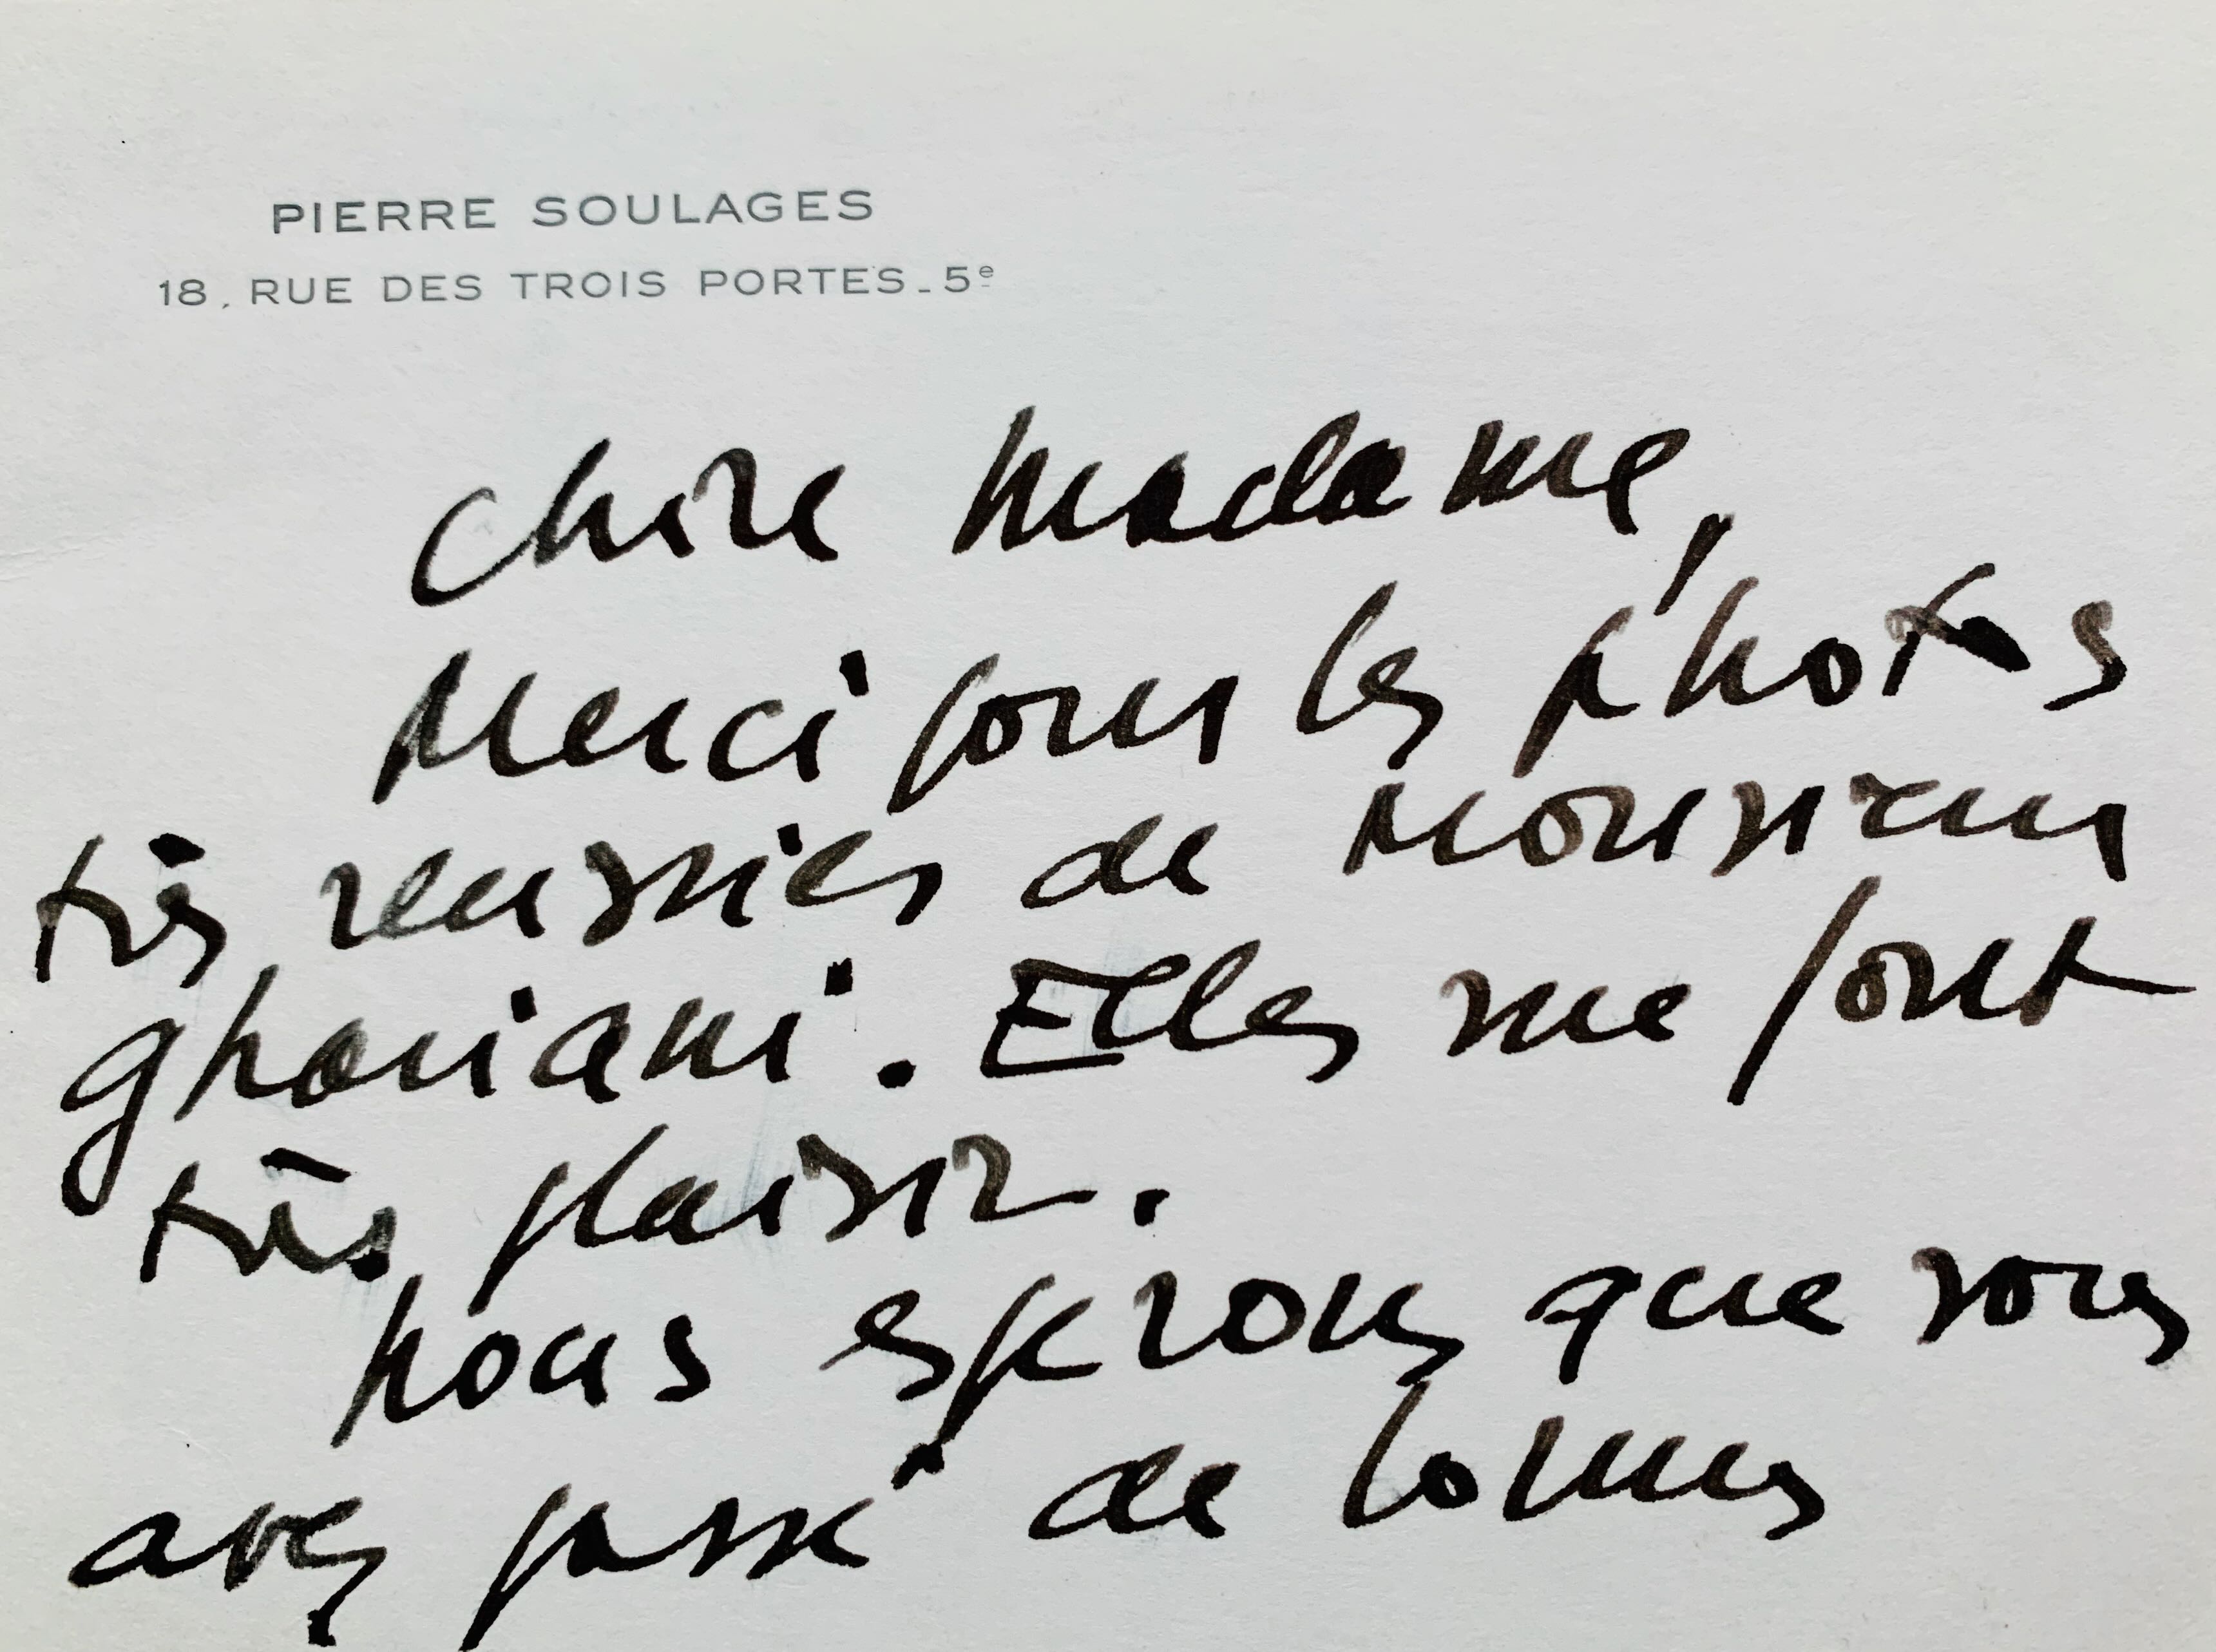 PIERRE SOULAGES
18, RUE DES TROIS PORTES - 5e
Chère Madame,
Merci pour les photos
très réussies de Monsieur
Ghouiani. Elles me font
très plaisir.
Nous espérons que vous
avez passé de bonnes